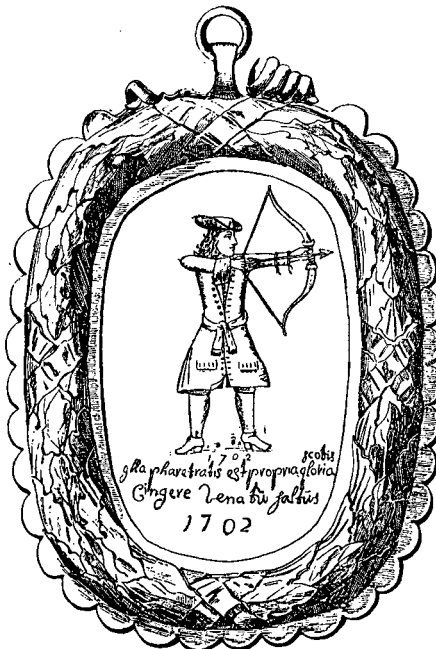 1702 scotis
illa pharatratis est propria gloria
Cingere Venatu saltus
1702